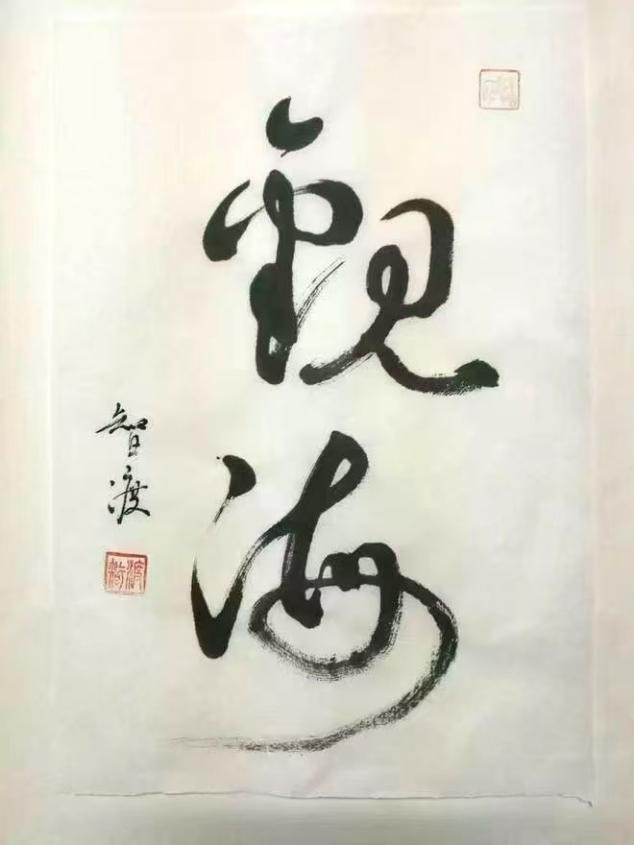 觀海
智渡